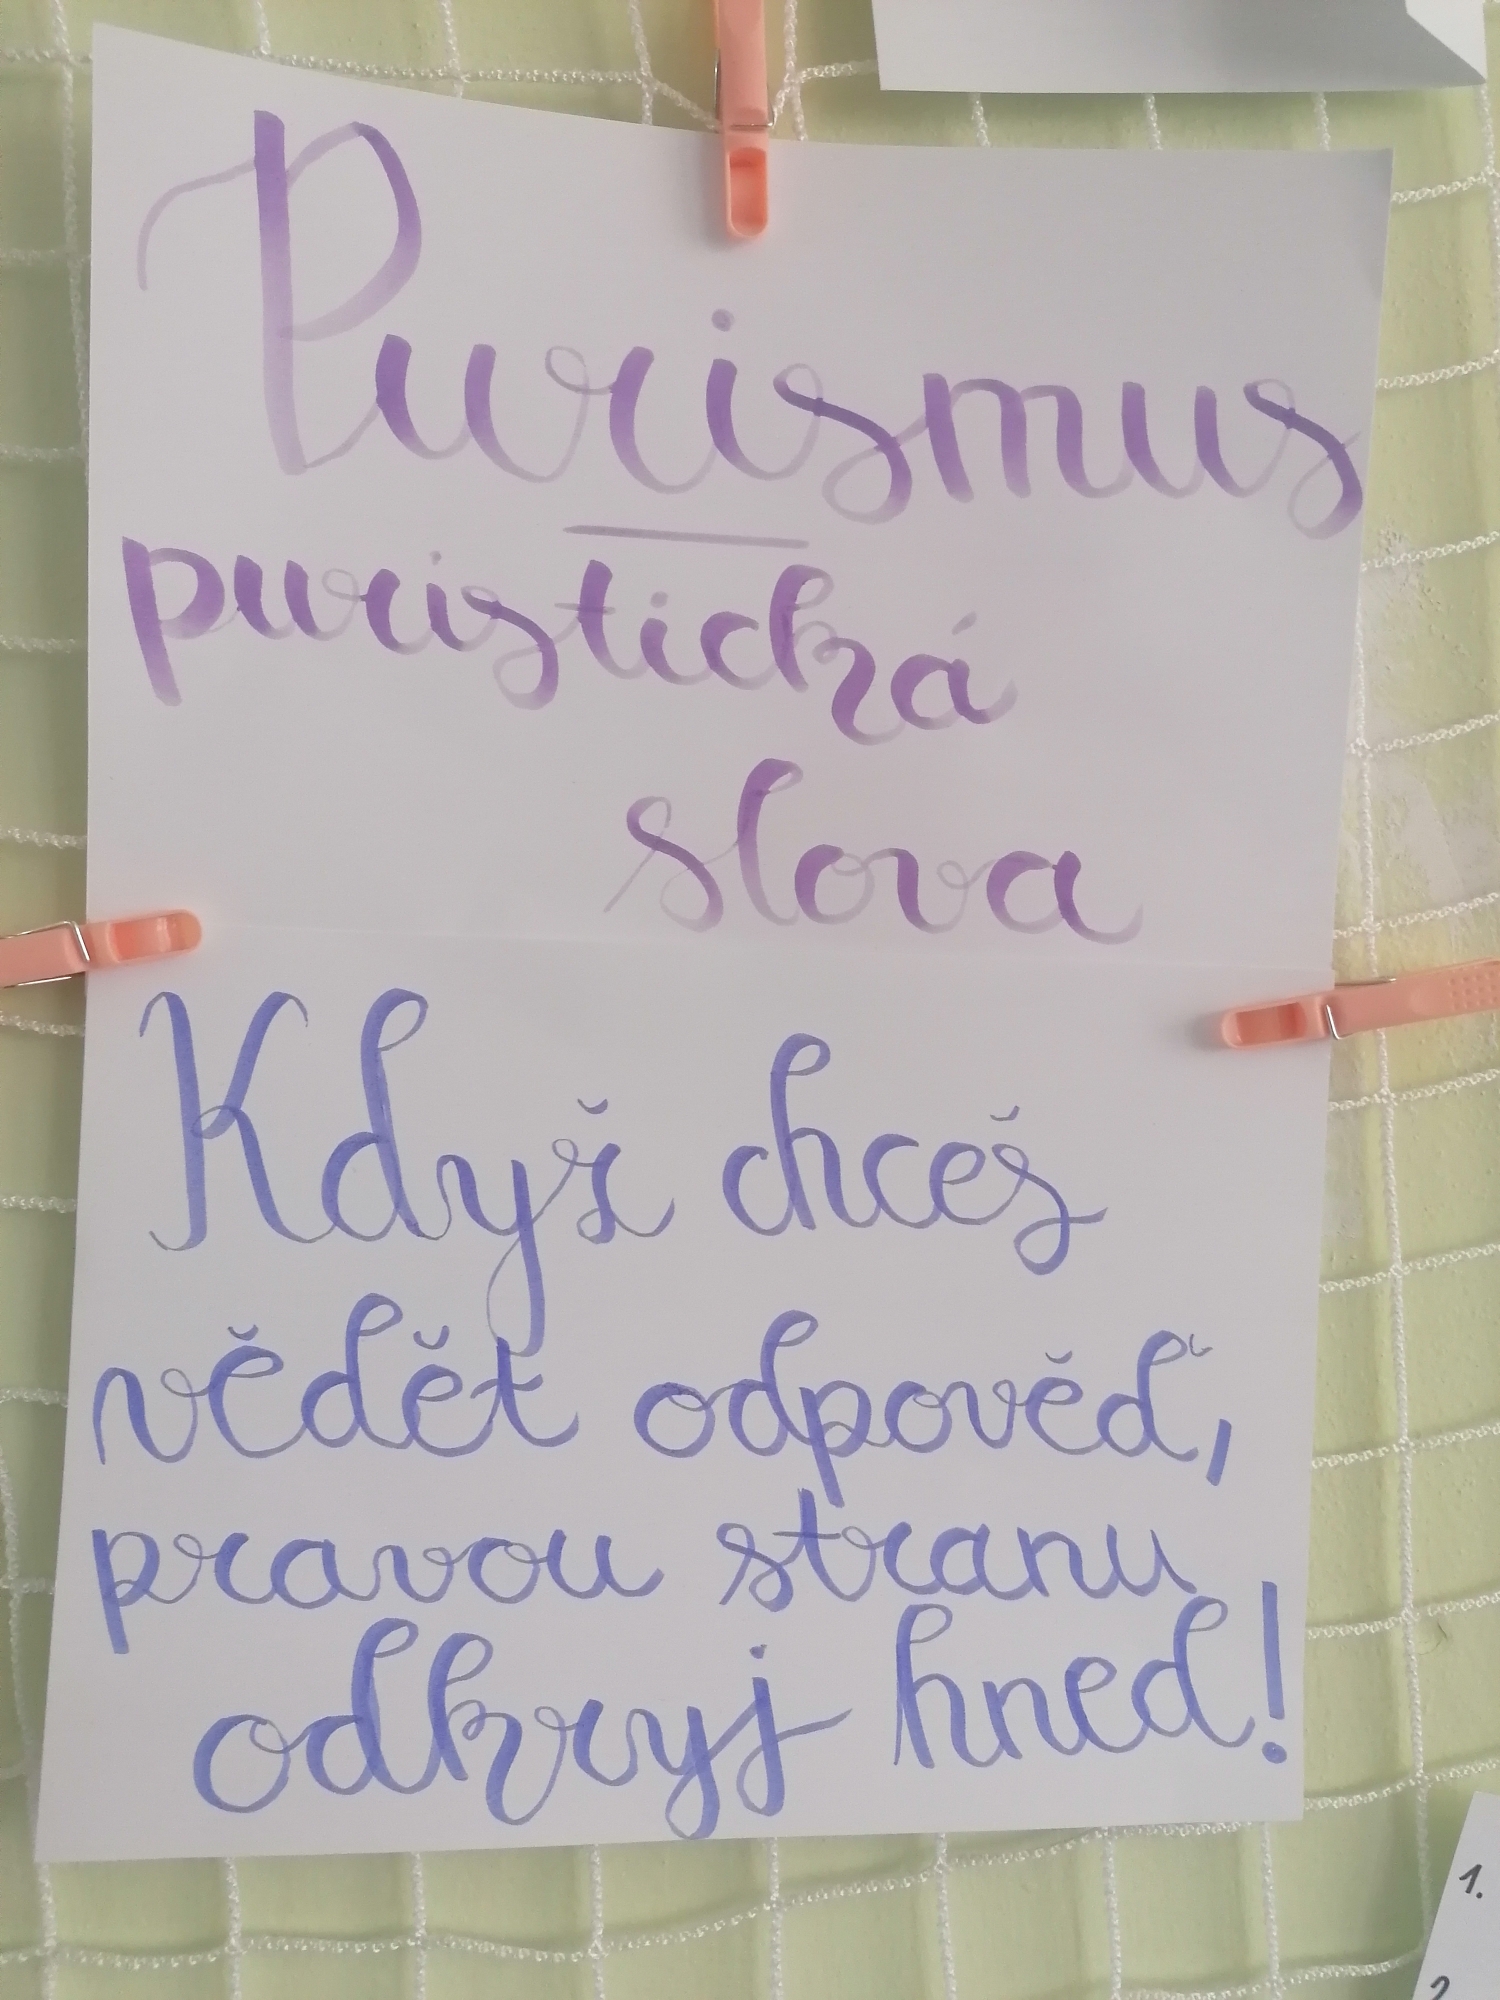 Purismus
puristická
slova
Když chceš
vědět odpověď,
pravou stranu
odkryj hned!
1.
2